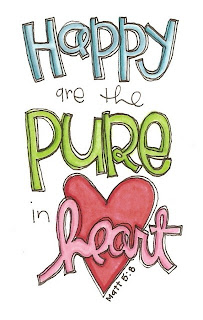 Happy
are the
PURE
in
heart
Matt 5:8